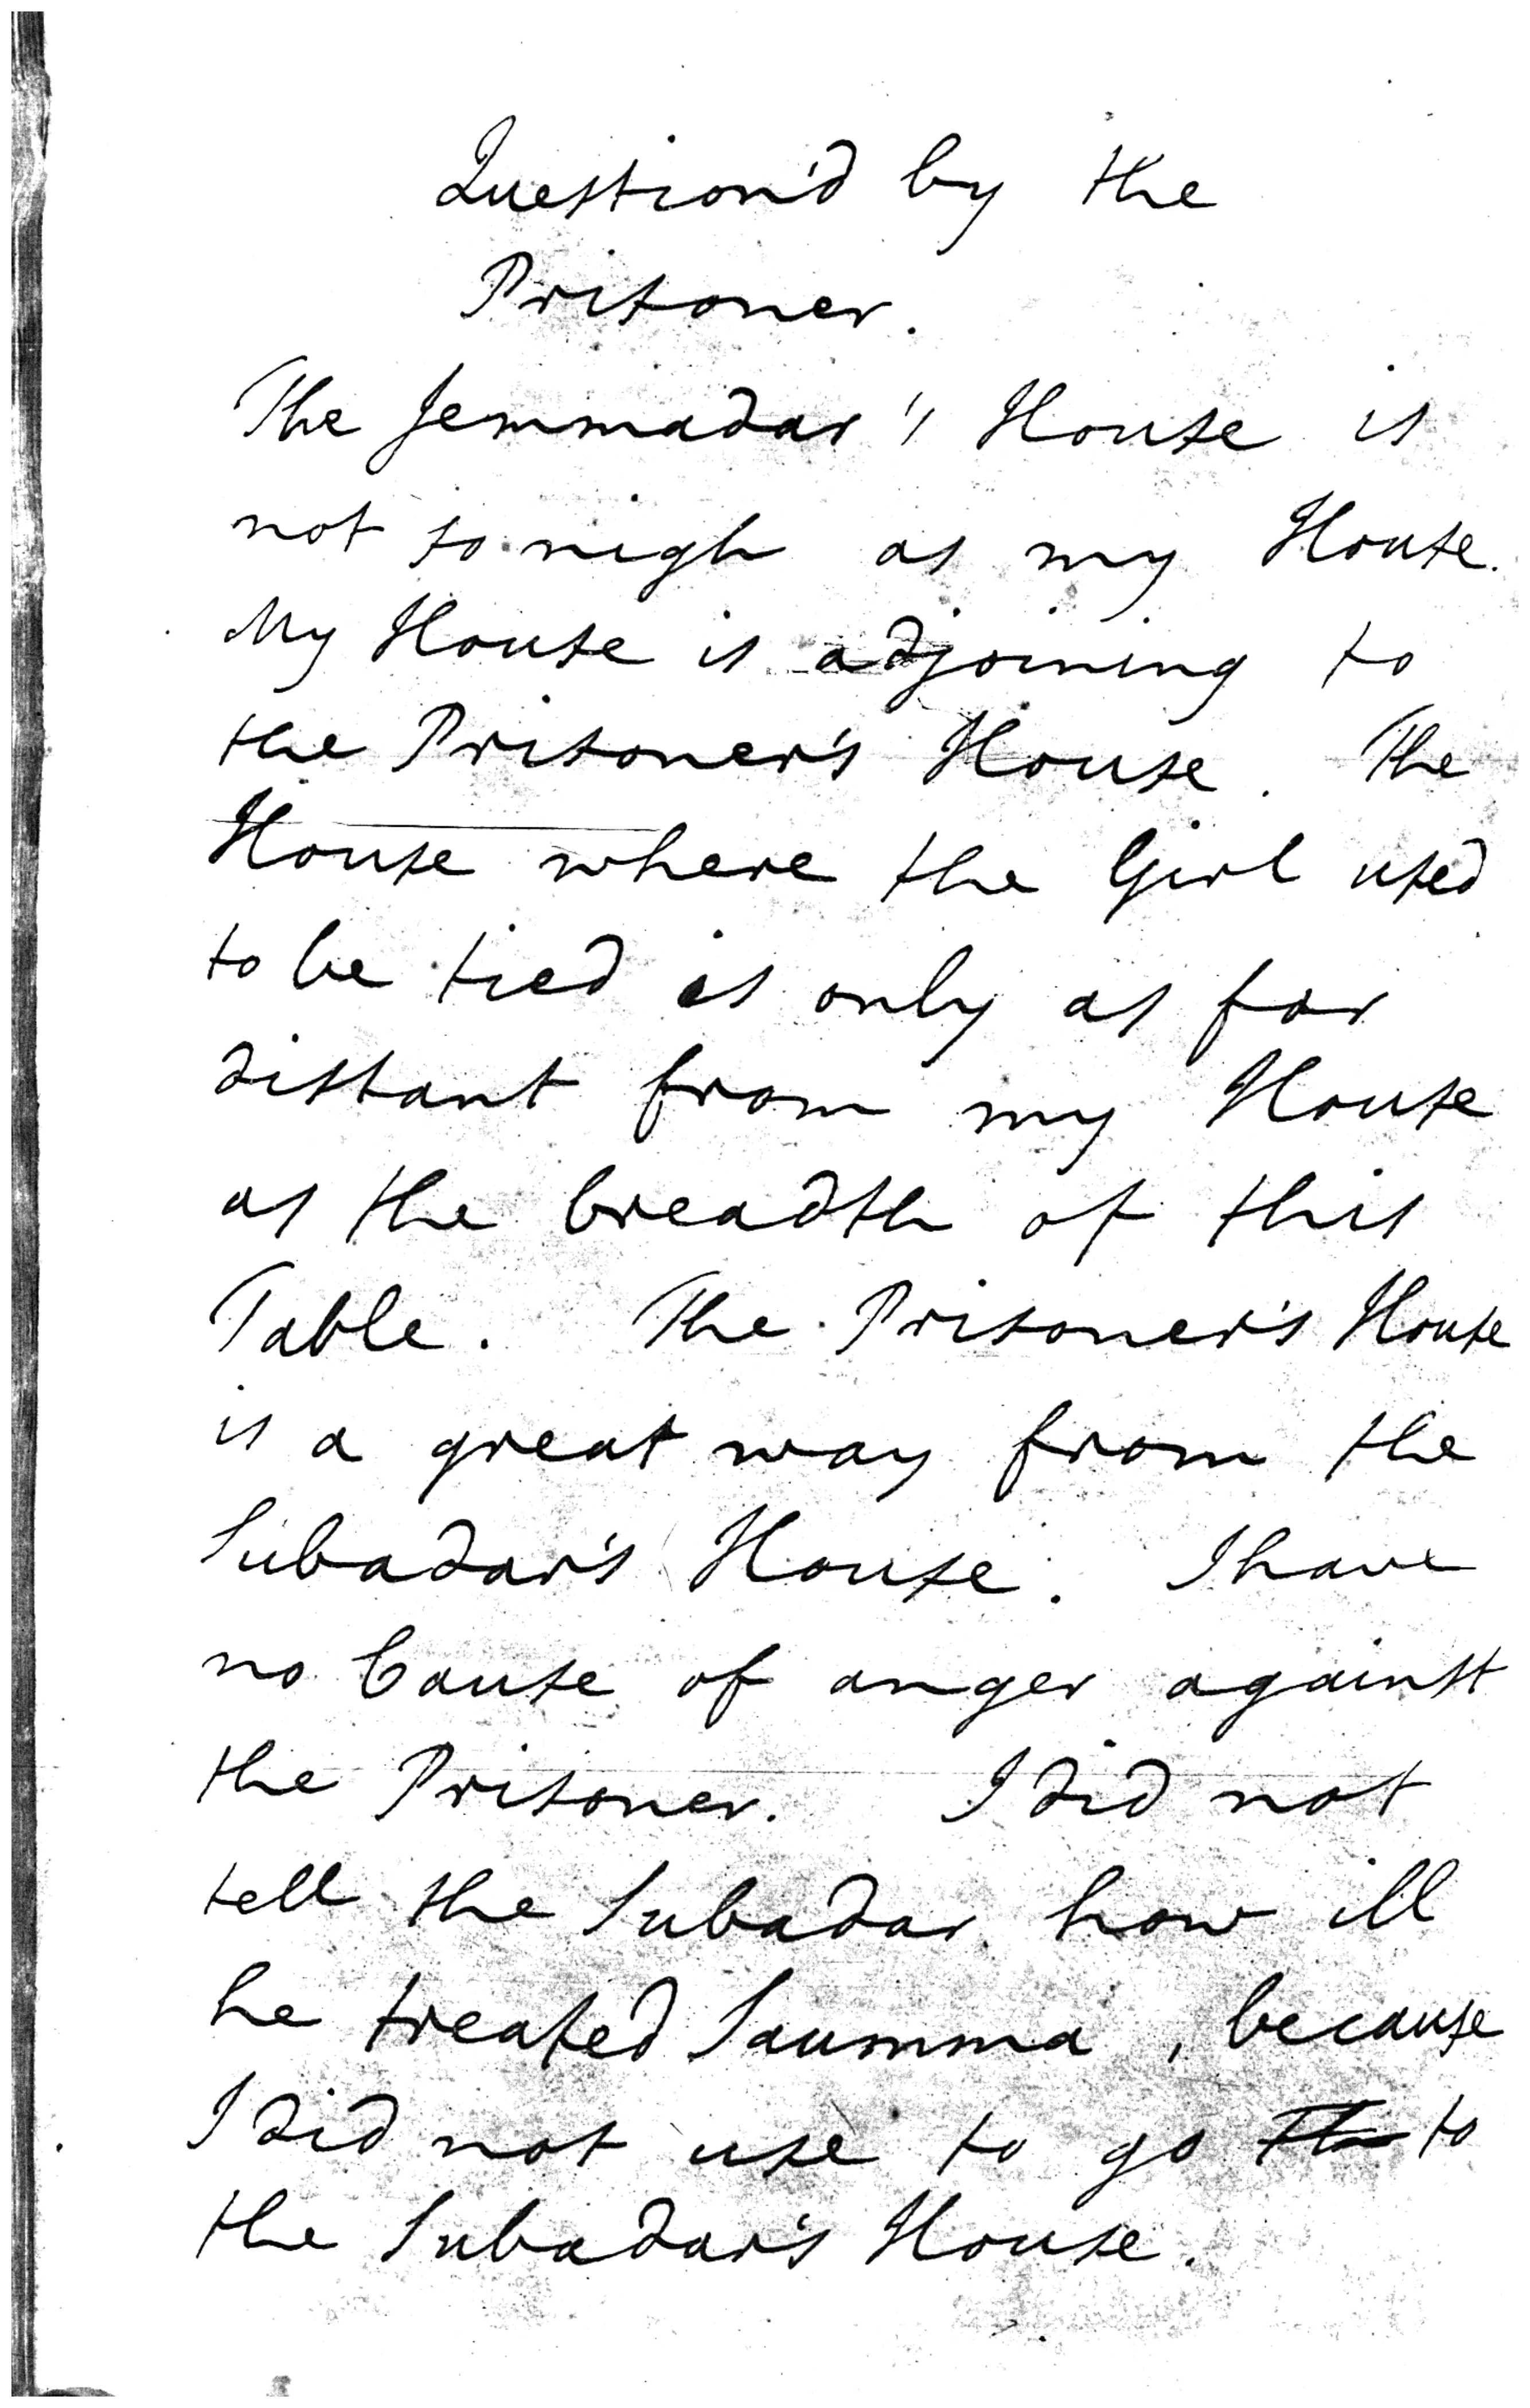 Question'd by the
Prisoner.
The Jemmadar's House is
not so nigh as my House.
My House is adjoining to
the Prisoner's House. The
House where the Girl used
to be tied is only as far
distant from my House
as the breadth of this
Table. The Prisoner's House
is a great way from the
Subadar's House. I have
no Cause of anger against
the Prisoner. I did not
tell the Subadar how ill
he treated Saumma, because
I did not use to go <del>the</del> to
the Subadar's House.